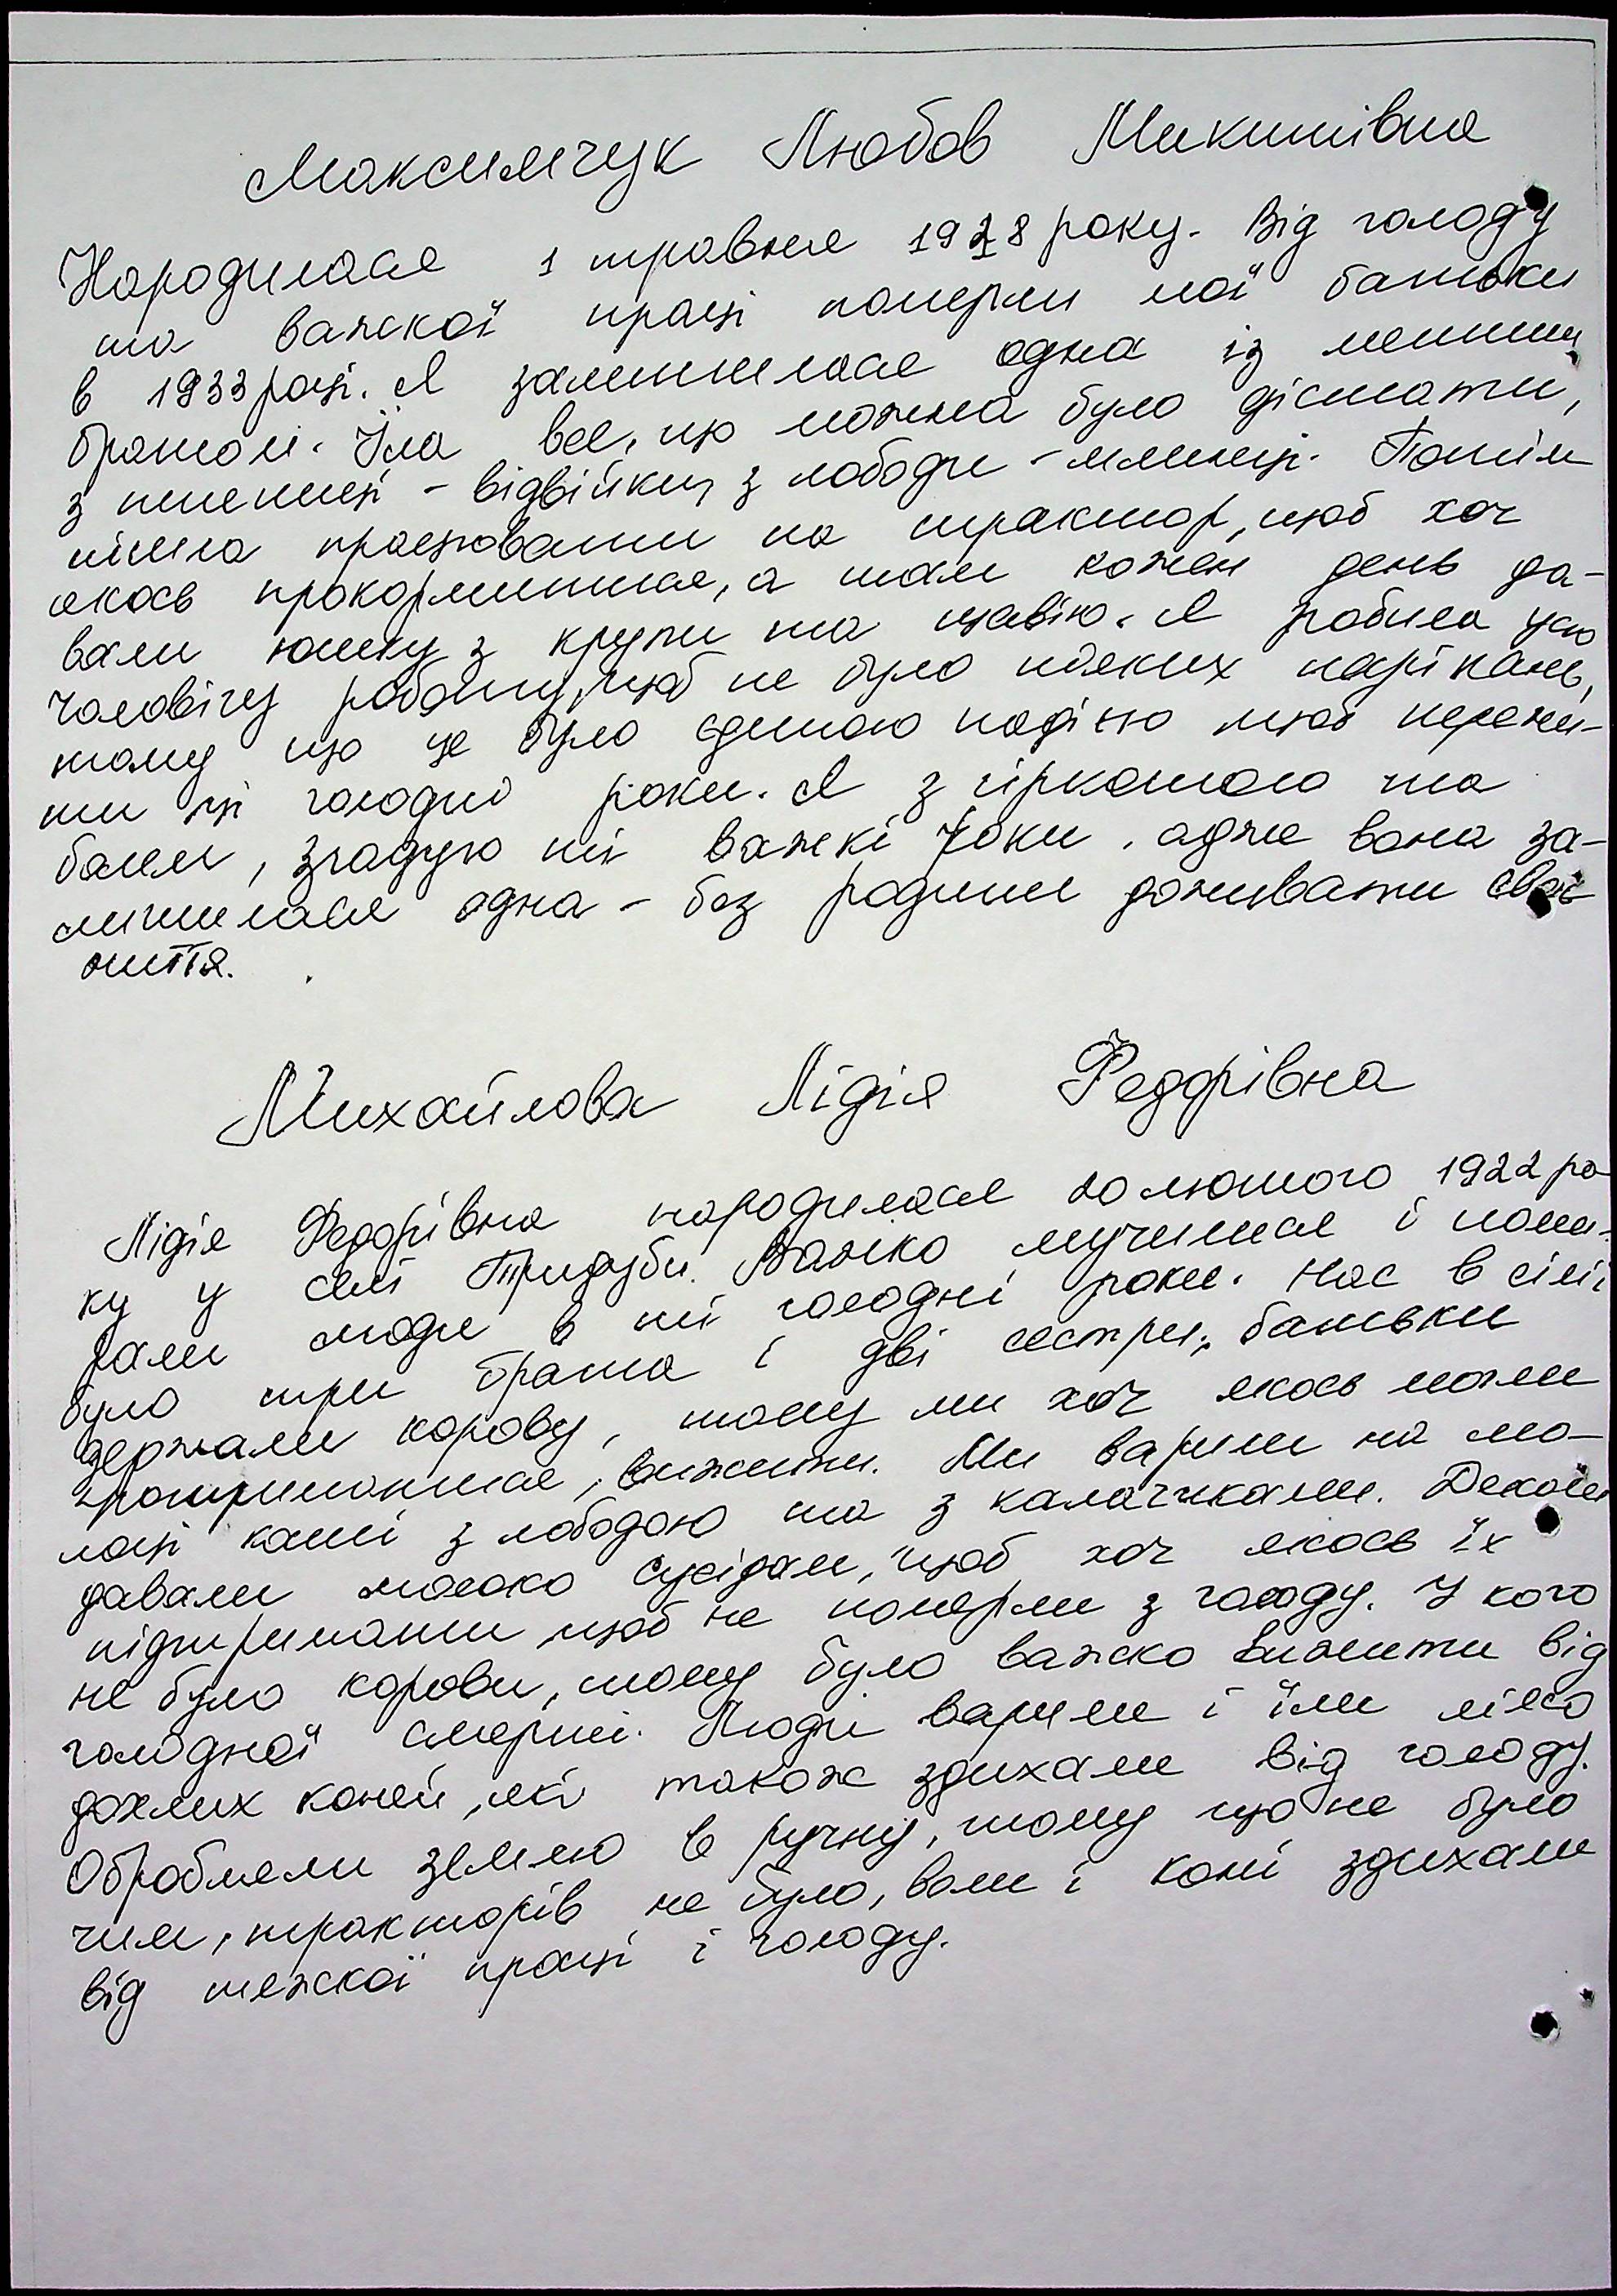 Максимчук Любов Микитівна
Народилася 1 травня 1928 року. Від голоду
та важкої праці померли мої батьки
в 1933 році. Я залишилася одна із меншим
братом. Їла все, що можна було дістати,
з пшениці - відвійки, з лободи - млинці. Потім
пішла працювати на трактор, щоб хоч
якось прокормитися, а там кожен день да-
вали юшку з крупи та щавію. Я робила усю
чоловічу роботу, щоб не було ніяких нарікань,
тому що це було єдиною надією щоб пережи-
ти ці голодні роки. Я з гіркотою та
болем, згадую ті важкі роки, адже вона за-
лишилася одна - без родини доживати своє
життя.
Михайлова Лідія Федорівна
Лідія Федорівна народилася 20 лютого 1922 ро-
ку у селі Тридуби. Важко мучилися і поми-
рали люди в ті голодні роки. Нас в сім'ї
було три брата і дві сестри, батьки
держали корову, тому ми хоч якось могли
протриматися, вижити. Ми варили на мо-
лоці каші з лободою та з калачиками. Деколи
давали молоко сусідам, щоб хоч якось їх
підтримати, щоб не померли з голоду. У кого
не було корови, тому було важко вижити від
голодної смерті. Люди варили і їли м'ясо
дохлих коней, які також здихали від голоду.
Обробляли землю в ручну, тому що не було
чим, тракторів не було, воли і коні здихали
від тяжкої праці і голоду.